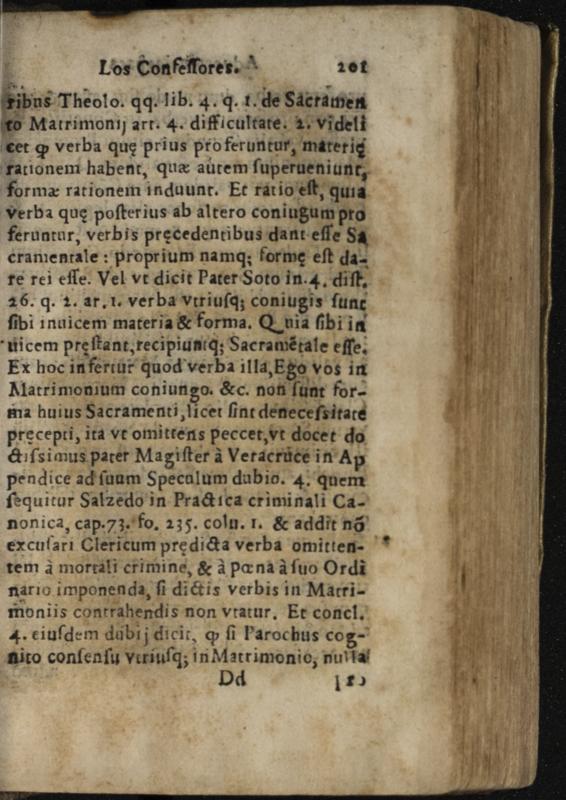 Los Confessores. 201
ribus Theolo. qq. lib. 4. q. 1. de Sacramen
to Matrimonij art. 4. difficultate. 2. videli
cet ꝙ verba quę prius proferuntur, materię
rationem habent, quæ autem superueniunt,
formæ rationem induunt. Et ratio est, quia
verba quę posterius ab altero coniugum pro
feruntur, verbis pręcedentibus dant esse Sa
cramentale : proprium namq; formę est da-
re rei esse. Vel vt dicit Pater Soto in. 4. dist.
26. q. 2. ar. 1. verba vtriusq; coniugis sunt
sibi inuicem materia & forma. Quia sibi in
uicem pręstant, recipiuntq; Sacramētale esse.
Ex hoc infertur quod verba illa, Ego vos in
Matrimonium coniungo. &c. non sunt for-
ma huius Sacramenti, licet sint denecessitate
pręcepti, ita vt omittens peccet, vt docet do
ctissimus pater Magister à Veracruce in Ap
pendice ad suum Speculum dubio. 4. quem
sequitur Salzedo in Practica criminali Ca-
nonica, cap. 73. fo. 235. colu. 1. & addit nō
excusari Clericum prędicta verba omitten-
tem à mortali crimine, & à pœna à suo Ordi
nario imponenda, si dictis verbis in Matri-
moniis contrahendis non vtatur. Et concl.
4. eiusdem dubij dicit, ꝙ si Parochus cog-
nito consensu vtriusq; in Matrimonio, nulla
Dd